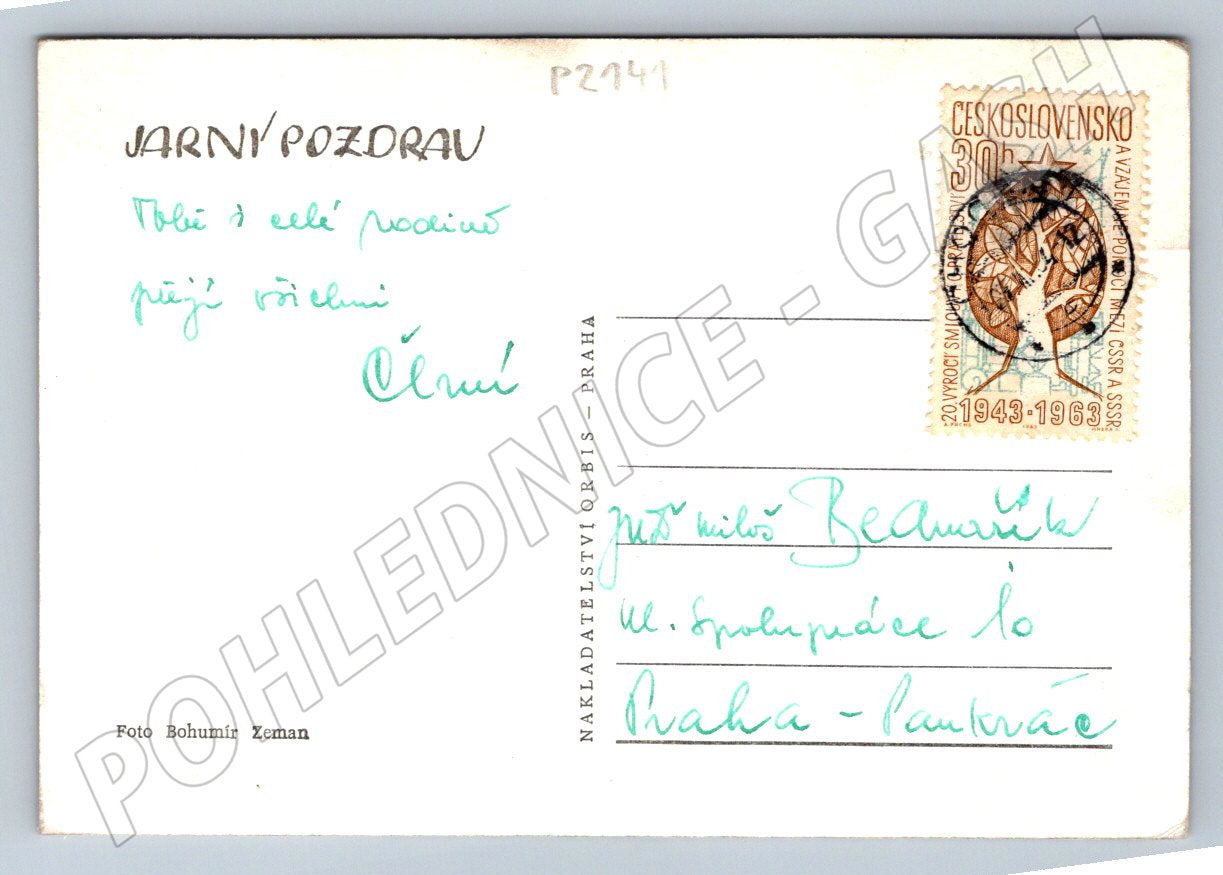 P2141
JARNÝ POZDRAV
Tobě i celé rodině
přejí všichni
Foto Bohumír Zeman
NAKLADATELSTVÍ ORBIS – PRAHA
ČESKOSLOVENSKO
30h
20. VÝROČÍ SMLOUVY O PŘÁTELSTVÍ A VZÁJEMNÉ POMOCI MEZI ČSSR A SSSR
1943-1963
Miloš Bednařík
ul. Spolupráce 10
Praha - Pankrác
POHLEDNICE - GASH